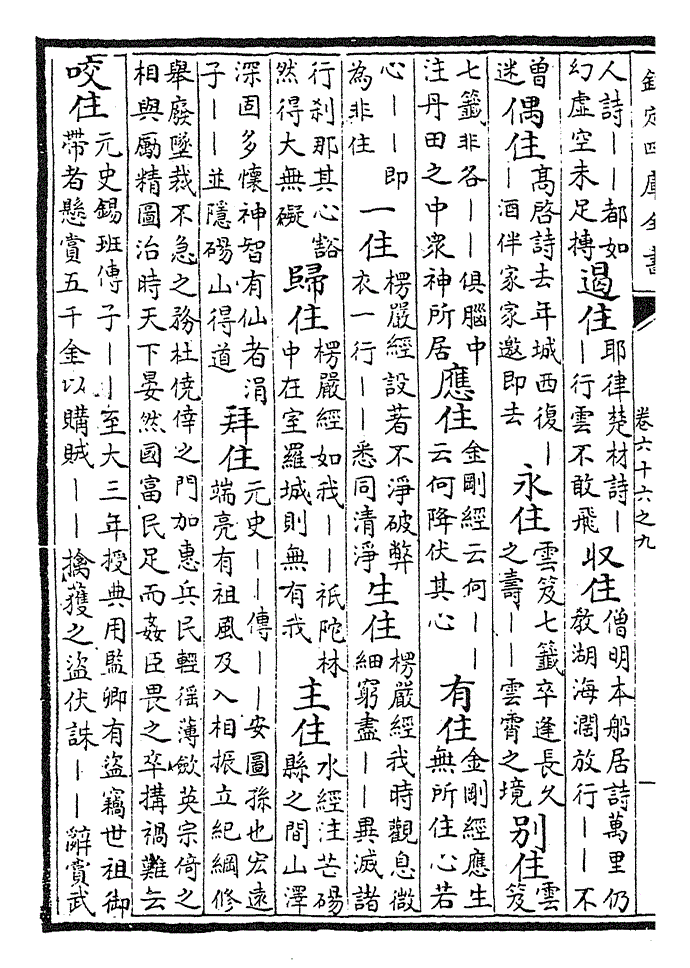 欽定四庫全書 卷六十六之九 一
人詩――都如幻虛空未足摶 遏住 耶律楚材詩―― 行雲不敢飛 收住 僧明本船居詩萬里仍敎湖海濶放行――不
曾迷 偶住 髙啓詩去年城西復――酒伴家家邀即去 永住 雲笈七籖卒逢長久之壽――雲霄之境 别住 雲笈
七籖非各――俱腦中注丹田之中衆神所居 應住 金剛經云何――云何降伏其心 有住 金剛經應生無所住心若
心――即為非住 一住 楞嚴經設著不淨破弊衣一行――悉同清淨 生住 楞嚴經我時觀息微細窮盡――異滅諸
行刹那其心豁然得大無礙 歸住 楞嚴經如我――祇陀林中在室羅城則無有我 主住 水經注芒碭縣之間山澤
深固多懷神智有仙者涓子――並隱碭山得道 拜住 元史――傳――安圖孫也宏遠端亮有祖風及入相振立紀綱修
舉廢墜裁不急之務杜僥倖之門加惠兵民輕徭薄斂英宗倚之相與勵精圖治時天下晏然國富民足而姦臣畏之卒搆禍難云
咬住 元史錫班傳子――至大三年授典用監卿有盜竊世祖御帶者懸賞五千金以購賊――擒獲之盜伏誅――辭賞武